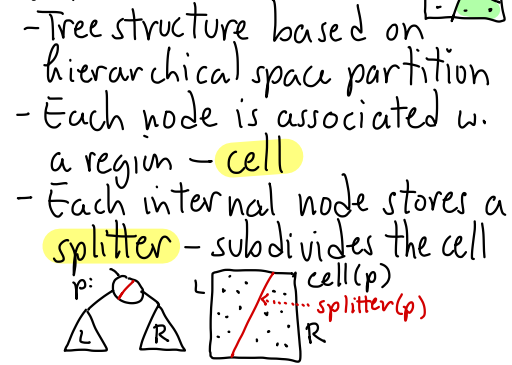 - Tree structure based on
hierarchical space partition
- Each node is associated w.
a region - cell
- Each internal node stores a
splitter - subdivides the cell
p:
L
R
L
cell(p)
splitter(p)
R